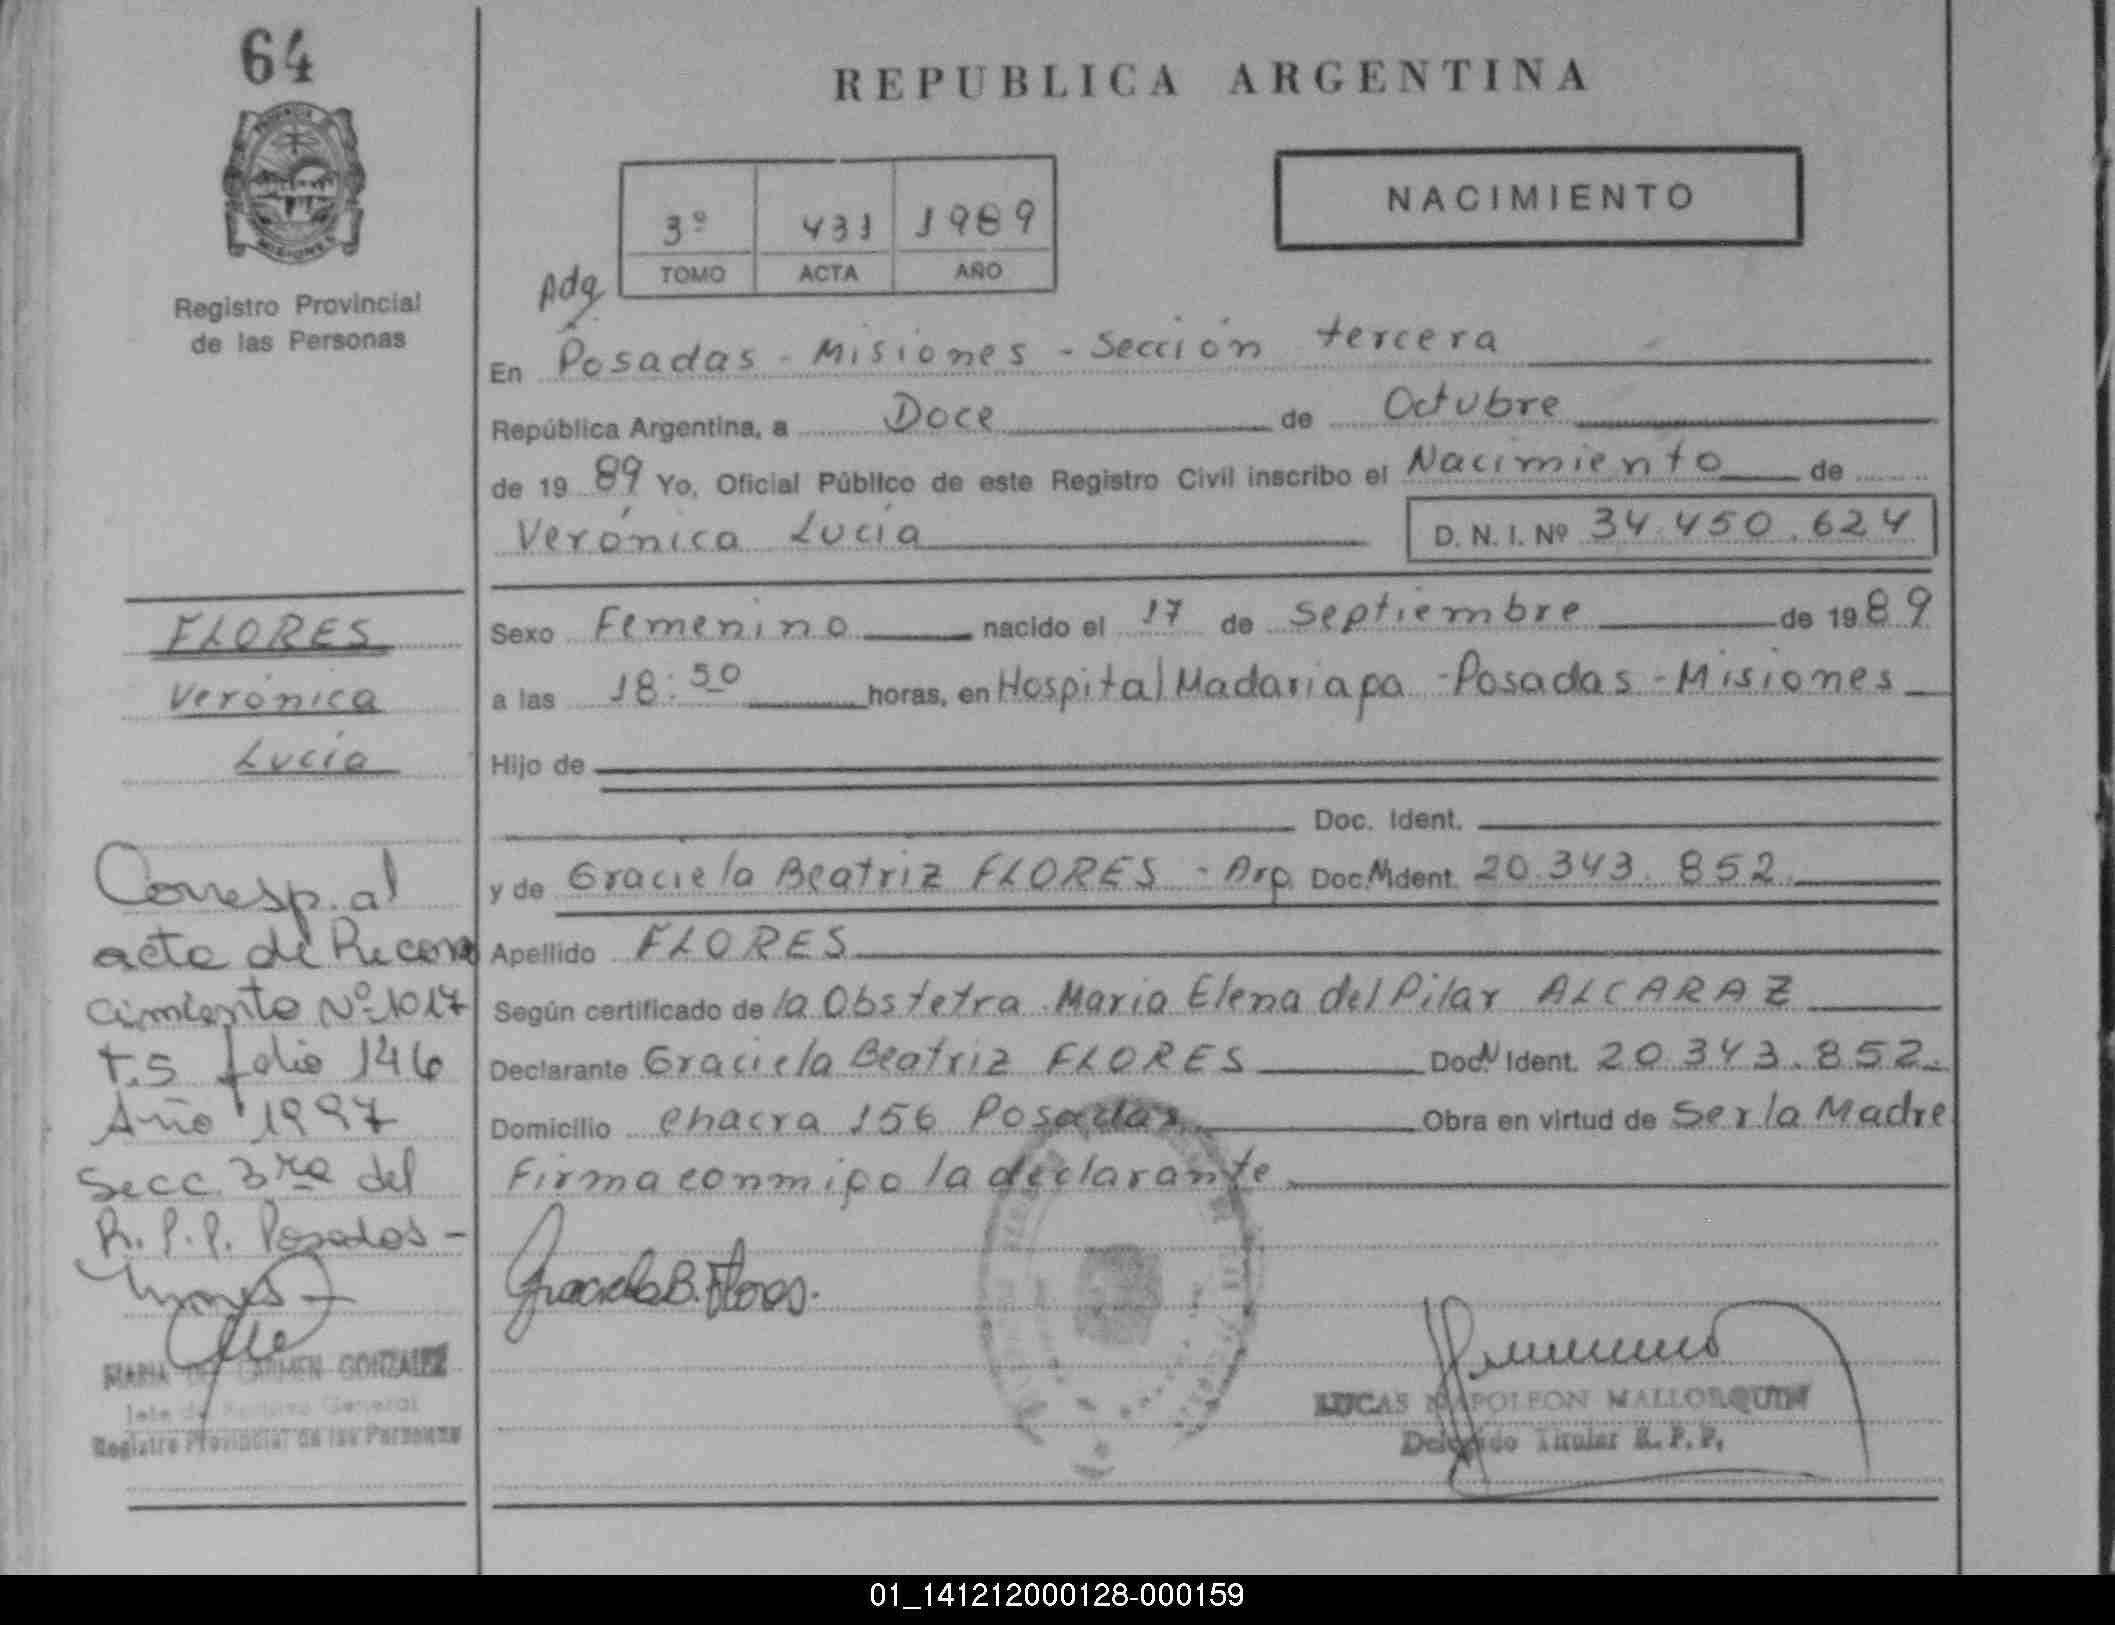 64
Registro Provincial
de las Personas
REPUBLICA ARGENTINA
3º 431 1989
TOMO ACTA AÑO
NACIMIENTO
Adg
En Posadas - Misiones - Sección tercera
República Argentina, a Doce de Octubre
de 1989 Yo, Oficial Público de este Registro Civil inscribo el Nacimiento de
Verónica Lucía D. N. I. Nº 34.450.624
Sexo Femenino nacido el 17 de septiembre de 1989
a las 18:50 horas, en Hospital Madariaga - Posadas - Misiones
Hijo de
Doc. Ident.
y de Graciela Beatriz FLORES - Arg. Doc.N Ident. 20.343.852
Apellido FLORES
Según certificado de la Obstetra Maria Elena del Pilar ALCARAZ
Declarante Graciela Beatriz FLORES Doc.N Ident. 20.343.852
Domicilio chacra 156 Posadas Obra en virtud de Ser la Madre
Firma conmigo la declarante
Graciela B. Flores.
LUCAS NAPOLEON MALLORQUIN
Delegado Titular R. P. P.
FLORES
Verónica
Lucía
Corresp. al
acta de Recono
cimiento Nº 1017
t.5 folio 146
Año 1997
Secc. 3ra del
R. P. P. Posadas -
MARIA DEL CARMEN GONZALEZ
Jefe de Archivo General
Registro Provincial de las Personas
01_141212000128-000159